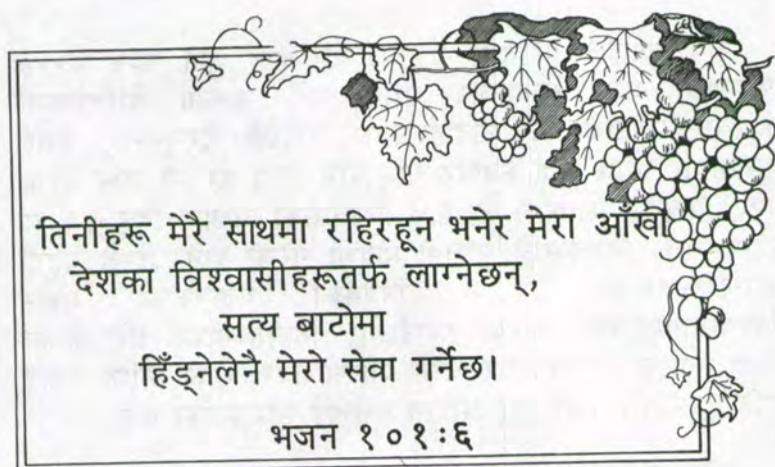 तिनीहरू मेरै साथमा रहिरहून भनेर मेरा आँखा
देशका विश्वासीहरूतर्फ लाग्नेछन्,
सत्य बाटोमा
हिँड्नेलेनै मेरो सेवा गर्नेछ।
भजन १०१:६